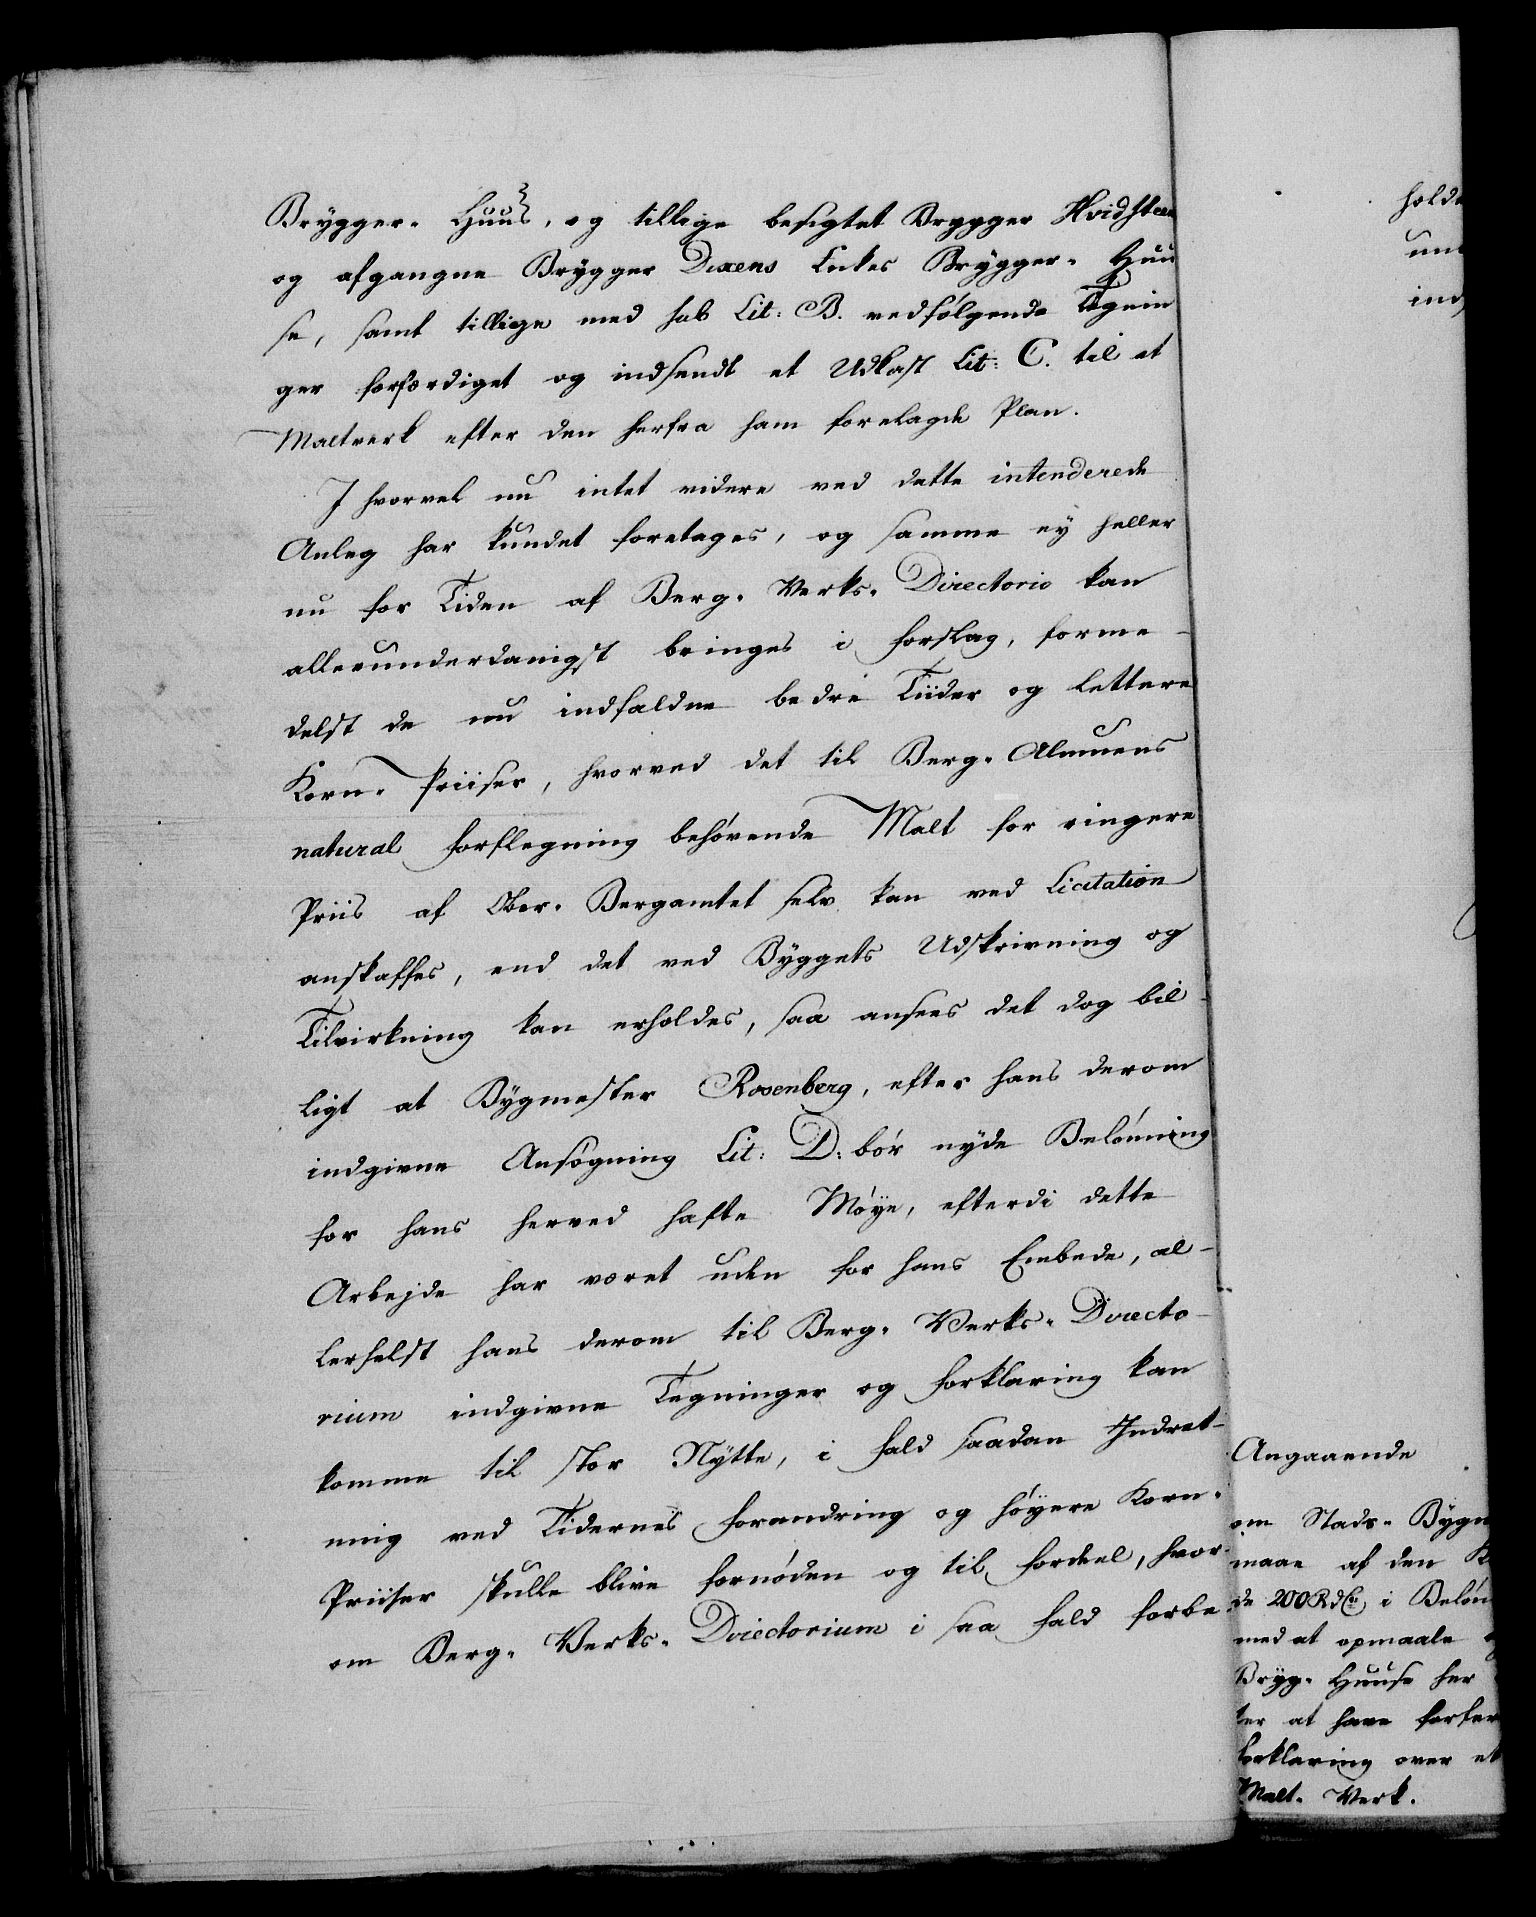 Brygger- Huus, og tillige besigtet Brygger Hvidsteen
og afgangne Brygger Dixens Enkes Brygger- Huu
se, samt tillige med sub Lit: B. vedfølgende Tegnin
ger forfærdiget og indsendt et Udkast Lit: C. til et
Maltverk efter den herfra ham forelagde Plan.
I hvorvel nu intet videre ved dette intenderede
Anleg har kundet foretages, og samme ey heller
nu for Tiden af Berg- Verks- Directorio kan
allerunderdanigst bringes i forslag, forme-
delst de nu indfaldne bedre Tiider og lettere
Korn- Priiser, hvorved det til Berg- Almuens
natural forflegning behøvende Malt for ringere
Priis af Ober- Bergamtet selv kan ved Licitation
anskaffes, end det ved Byggets Udskrivning og
Tilvirkning kan erholdes, saa ansees det dog bil-
ligt at Bygmester Rosenberg, efter hans derom
indgivne Ansøgning Lit: D: bør nyde Belønning
for hans herved hafte Møye, efterdi dette
Arbejde har været uden for hans Embede, al-
lerhelst hans derom til Berg- Verks- Directo-
rium indgivne Tegninger og forklaring kan
komme til stor Nytte, i fald saadan Indret-
ning ved Tidernes forandring og høyere Korn-
Priiser skulle blive fornøden og til fordeel, hvor-
om Berg- Verks- Directorium i saa fald forbe
holde
und
ind
Angaaende
om Stads- Bygm
maae af den K
de 200 Rdlr i Beløn
med at opmaale
Bryg- Huuse her
ter at have forfær
forklaring over et
Malt- Verk.